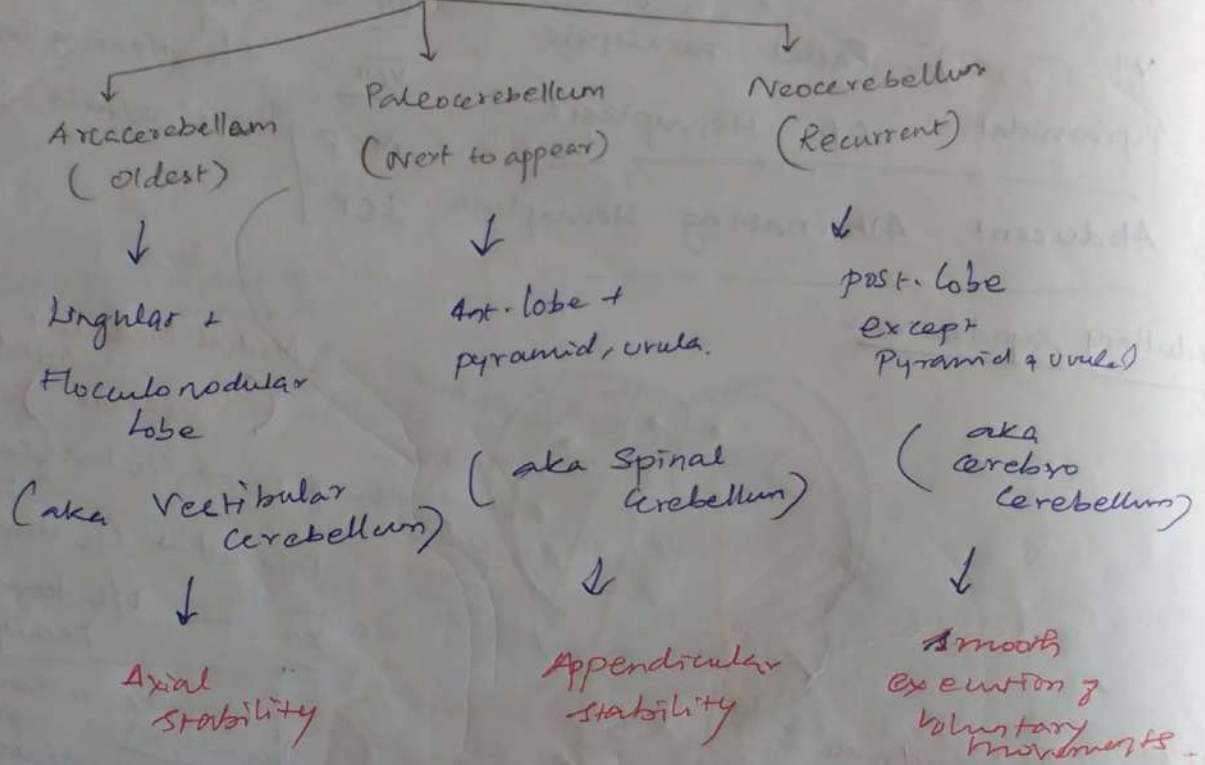 Arcacerebellam
(oldest)
↓
Lingular +
Flocculonodular
Lobe
(aka Vestibular
cerebellum)
↓
Axial
stability
Paleocerebellum
(Next to appear)
↓
Ant. lobe +
pyramid, uvula.
(aka Spinal
Cerebellum)
↓
Appendicular
stability
Neocerebellum
(Recurrent)
↓
post. lobe
except
Pyramid & uvula)
(aka
cerebro
Cerebellum)
↓
smooth
execution of
voluntary
movements.
Abducent Alternating Hemiplegia